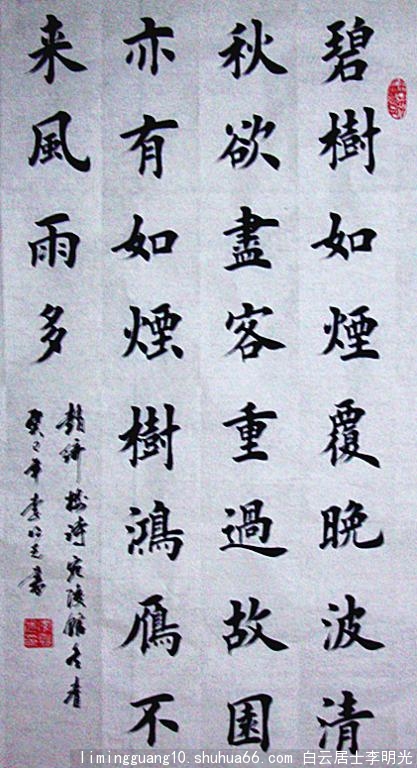 碧樹如煙覆晚波清
秋欲盡客重過故園
亦有如煙樹鴻鴈不
来風雨多
詩宛陵館冬青
癸巳年李明光書
limingguang10.shuhua66.com 白云居士李明光